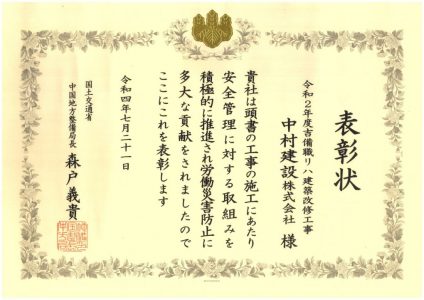 表彰状
令和２年度吉備職リハ建築改修工事
中村建設株式会社 様
貴社は頭書の工事の施工にあたり
安全管理に対する取組みを
積極的に推進され労働災害防止に
多大な貢献をされましたので
ここにこれを表彰します
令和四年七月二十一日
国土交通省
中国地方整備局長 森戸義貴